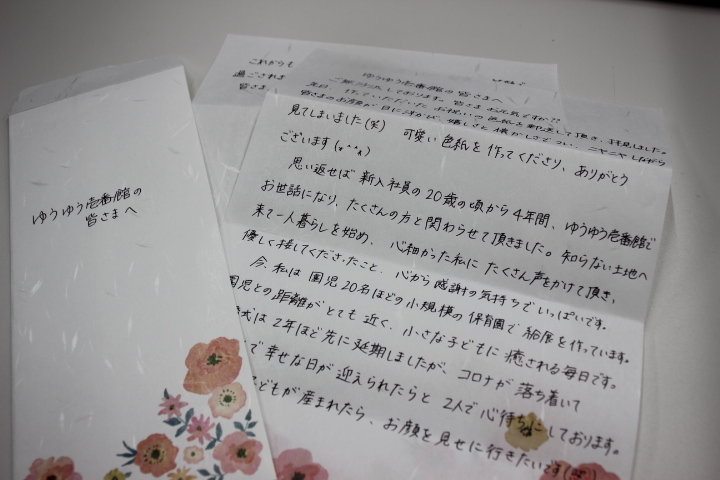 ゆうゆう壱番館の
皆さまへ
これからも
過ごされま
皆さま
ゆうゆう壱番館の皆さまへ
ご無沙汰しております。皆さまお元気ですか??
先日、作っていただいたお祝いの色紙を郵送して頂き、拝見しました。
皆さまのお顔が目に浮かび、嬉しさと懐かしさでつい、ニヤニヤしながら
見てしまいました(笑) 可愛い色紙を作ってくださり、ありがとう
ございます(^^)
思い返せば新入社員の20歳の頃から4年間、ゆうゆう壱番館で
お世話になり、たくさんの方と関わらせて頂きました。知らない土地へ
来て一人暮らしを始め、心細かった私にたくさん声をかけて頂き、
優しく接してくださったこと、心から感謝の気持ちでいっぱいです。
今、私は園児20名ほどの小規模の保育園で給食を作っています。
園児との距離がとても近く、小さな子どもに癒される毎日です。
式は2年ほど先に延期しましたが、コロナが落ち着いて
で幸せな日が迎えられたらと2人で心待ちにしております。
どもが産まれたら、お顔を見せに行きたいです